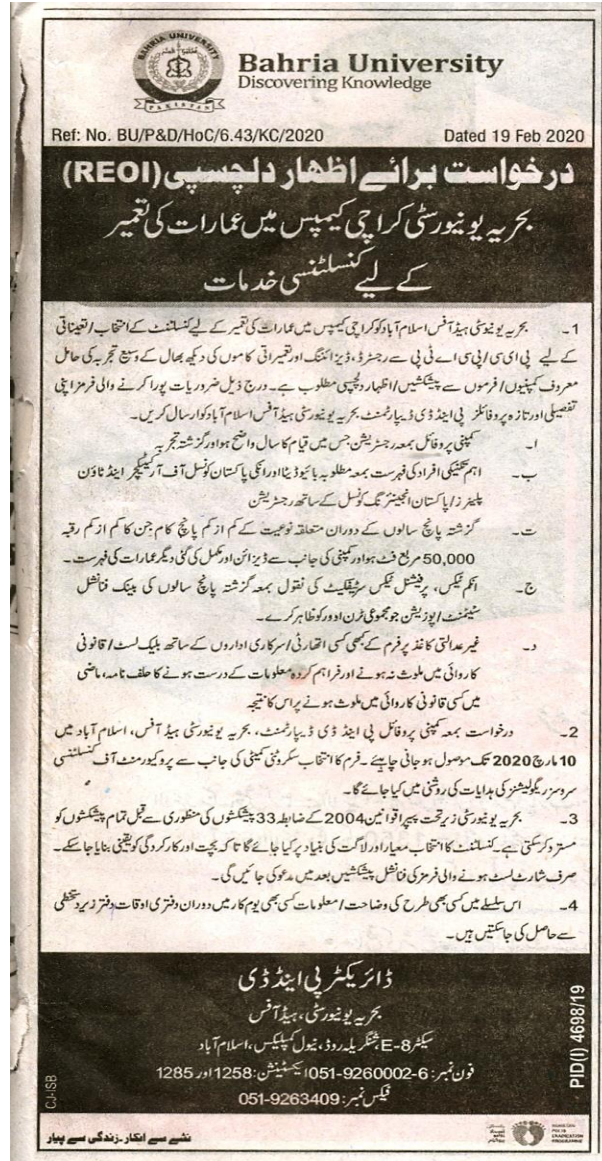 BAHRIA UNIVERSITY
PAKISTAN
Bahria University
Discovering Knowledge
Ref: No. BU/P&D/HoC/6.43/KC/2020 Dated 19 Feb 2020
درخواست برائے اظہار دلچسپی (REOI)
بحریہ یونیورسٹی کراچی کیمپس میں عمارات کی تعمیر
کے لیے کنسلٹنسی خدمات
1۔ بحریہ یونیوسٹی ہیڈ آفس اسلام آباد کو کراچی کیمپس میں عمارات کی تعمیر کے لیے کنسلٹنٹ کے انتخاب/تعیناتی
کے لیے پی ای سی/پی سی اے ٹی پی سے رجسٹرڈ، ڈیزائننگ اور تعمیراتی کاموں کی دیکھ بھال کے وسیع تجربہ کی حامل
معروف کمپنیوں/فرموں سے پیشکشیں/اظہار دلچسپی مطلوب ہے۔ درج ذیل ضروریات پورا کرنے والی فرمز اپنی
تفصیلی اور تازہ پروفائلز پی اینڈ ڈی ڈیپارٹمنٹ بحریہ یونیورسٹی ہیڈ آفس اسلام آباد کو ارسال کریں۔
ا۔ کمپنی پروفائل بمعہ رجسٹریشن جس میں قیام کا سال واضح ہو اور گزشتہ تجربہ
ب۔ اہم تکنیکی افراد کی فہرست بمعہ مطلوبہ بائیو ڈیٹا اور انکی پاکستان کونسل آف آرکیٹیکچر اینڈ ٹاؤن
پلینرز/پاکستان انجینئرنگ کونسل کے ساتھ رجسٹریشن
ت۔ گزشتہ پانچ سالوں کے دوران متعلقہ نوعیت کے کم از کم پانچ کام جن کا کم از کم رقبہ
50,000 مربع فٹ ہو اور کمپنی کی جانب سے ڈیزائن اور مکمل کی گئی دیگر عمارات کی فہرست۔
ج۔ انکم ٹیکس، پرفیشنل ٹیکس سرٹیفکیٹ کی نقول بمعہ گزشتہ پانچ سالوں کی بینک فنانشل
سٹیٹمنٹ/پوزیشن جو مجموعی ٹرن اوور کو ظاہر کرے۔
د۔ غیر عدالتی کاغذ پر فرم کے بھی کسی اتھارٹی/سرکاری اداروں کے ساتھ بلیک لسٹ/قانونی
کاروائی میں ملوث نہ ہونے اور فراہم کردہ معلومات کے درست ہونے کا حلف نامہ، ماضی
میں کسی قانونی کاروائی میں ملوث ہونے پر اس کا نتیجہ
2۔ درخواست بمعہ کمپنی پروفائل پی اینڈ ڈی ڈیپارٹمنٹ، بحریہ یونیورسٹی ہیڈ آفس، اسلام آباد میں
10 مارچ 2020 تک موصول ہو جانی چاہیئے۔ فرم کا انتخاب سکروٹنی کمیٹی کی جانب سے پروکیورمنٹ آف کنسلٹنسی
سروسز ریگولیشنز کی ہدایات کی روشنی میں کیا جائے گا۔
3۔ بحریہ یونیورسٹی زیر تحت پیپرا قوانین 2004 کے ضابطہ 33 پیشکشوں کی منظوری سے قبل تمام پیشکشوں کو
مسترد کر سکتی ہے۔ کنسلٹنٹ کا انتخاب معیار اور لاگت کی بنیاد پر کیا جائے گا تاکہ بچت اور کارکردگی کو یقینی بنایا جا سکے۔
صرف شارٹ لسٹ ہونے والی فرمز کی فنانشل پیشکشیں بعد میں مدعو کی جائیں گی۔
4۔ اس سلسلے میں کسی بھی طرح کی وضاحت/معلومات کسی بھی یوم کار میں دوران دفتری اوقات دفتر زیر دستخطی
سے حاصل کی جا سکتیں ہیں۔
ڈائریکٹر پی اینڈ ڈی
بحریہ یونیورسٹی، ہیڈ آفس
سیکٹر E-8، شنگریلہ روڈ، نیول کمپلیکس، اسلام آباد
فون نمبر: 6-9260002-051 ایکسٹینشن: 1258 اور 1285
فیکس نمبر: 051-9263409
PID(I) 4698/19
CJ-ISB
نشے سے انکار۔ زندگی سے پیار